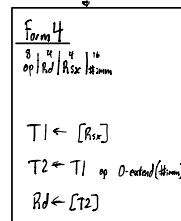 Form 4
8 4 4 16
op | Rd | Rsx | #imm
T1 ← [Rsx]
T2 ← T1 op 0-extend(#imm)
Rd ← [T2]